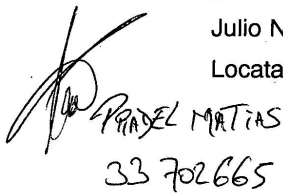 Julio N
Locata
PRADEL MATIAS
33 702665